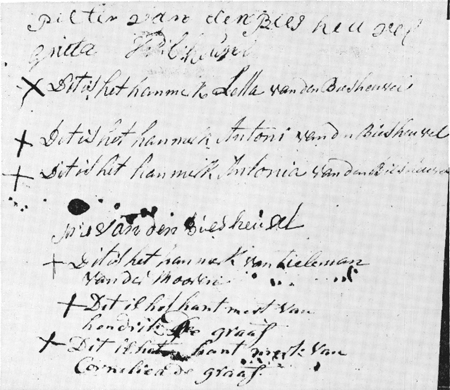 pieter van den Bies heu vel
gritta
X Dit is het hanmerk Lella van den Biesheuvel
+ Dit is het hanmerk Antoni van dn Biesheuvel
+ Dit is het hanmerk Antonia van den Biesheuvel
van den Biesheuvel
+ Dit is het hanmerk van tieleman
van der
+ Dit is het hant merk van
hendrik De graaf
+ Dit is het hant merk van
Cornelies de graaf